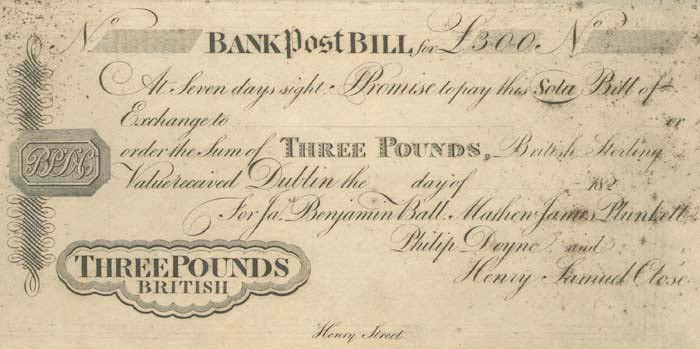 No BANK Post BILL for £3"0"0 No
At Seven days sight I Promise to pay this Sola Bill of
Exchange to or
order the Sum of THREE POUNDS, British Sterling
Value received Dublin the day of 182
For Jas. Benjamin Ball. Mathew James Plunkett
Philip Doyne and
Henry Samuel Close
THREE POUNDS
BRITISH
Henry Street